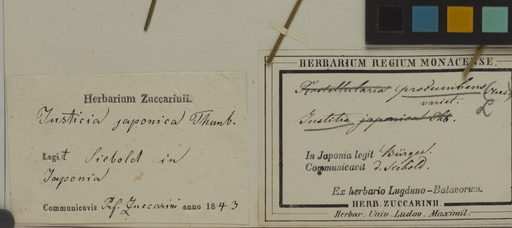 Herbarium Zuccarinii.
Justicia japonica Thunb.
Legit Siebold in
Japonia
Communicavit Prf. Zuccarini anno 1843
HERBARIUM REGIUM MONACENSE.
Rostellularia procumbens (Nees)
variet.
Justitia japonica Thb.
L
In Japonia legit Bürger.
Communicavit d. Siebold.
Ex herbario Lugduno-Batavorum.
HERB. ZUCCARINII.
Herbar. Univ. Ludov. Maximil.